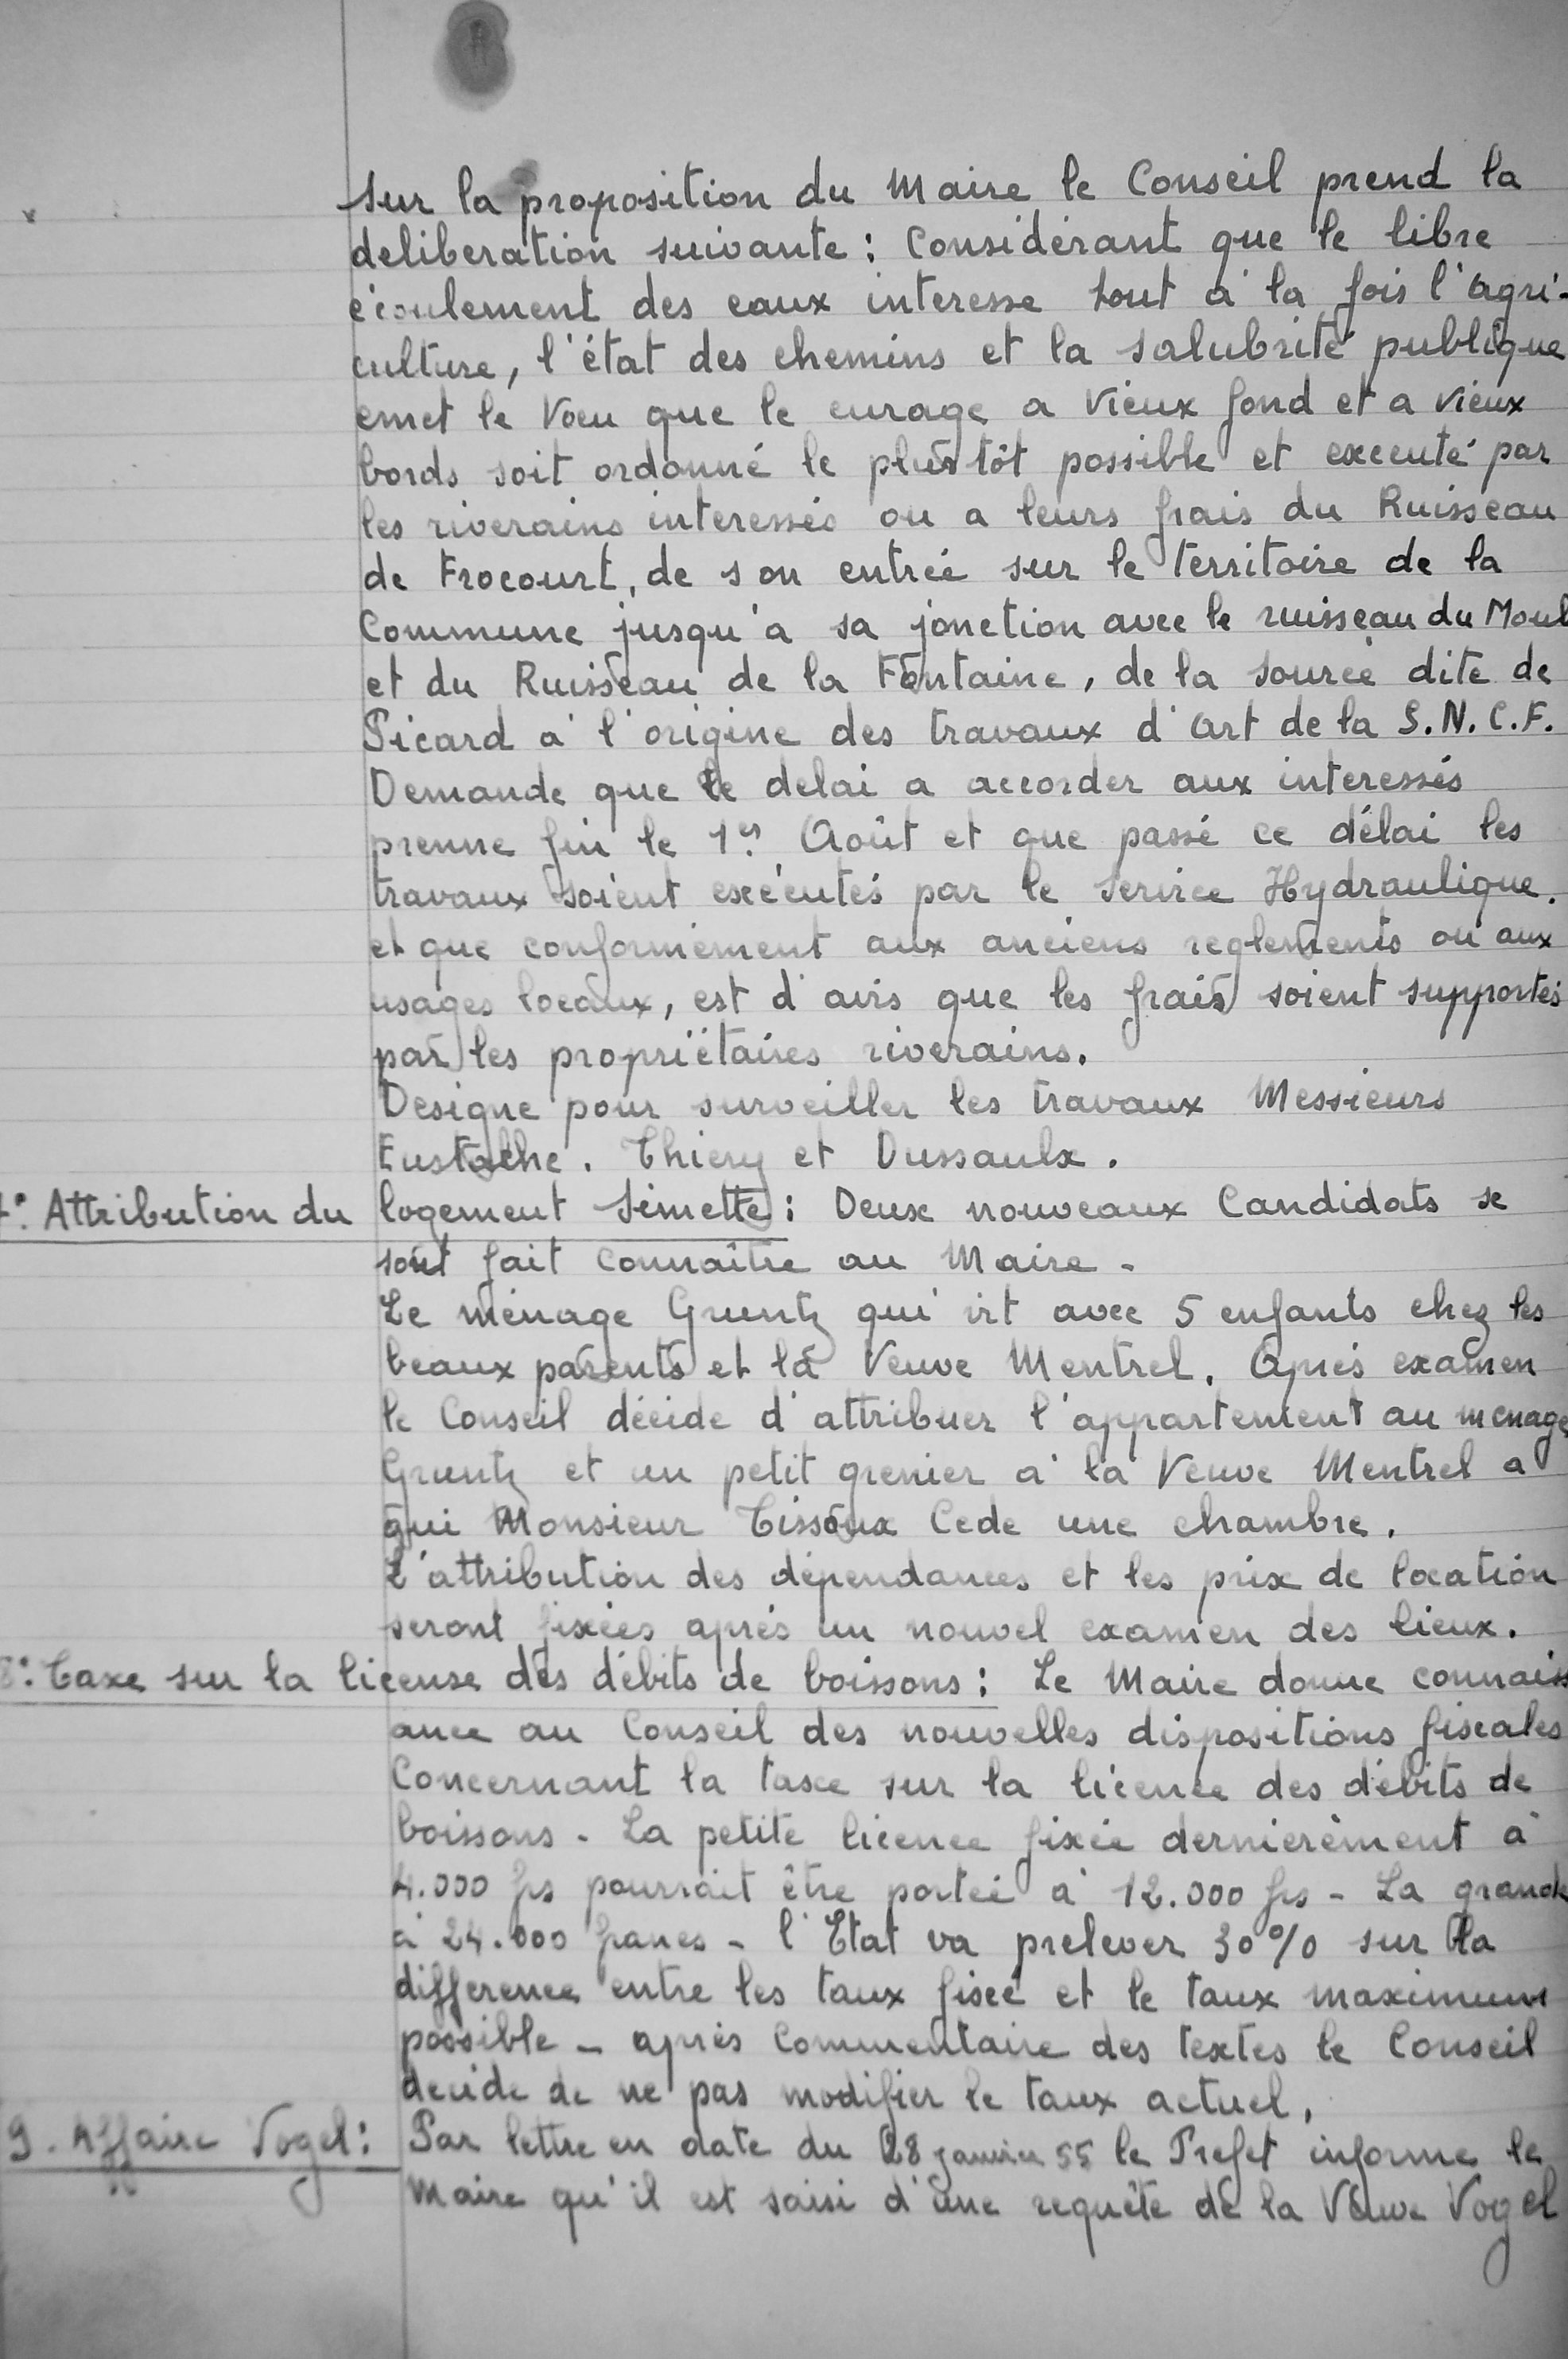 sur la proposition du Maire le Conseil prend la
deliberation suivante : Considérant que le libre
écoulement des eaux interesse tout à la fois l'agri-
culture, l'état des chemins et la salubrité publique
emet le Voeu que le curage a vieux fond et a vieux
bords soit ordonné le plus tôt possible et executé par
les riverains interessés ou a leurs frais du Ruisseau
de Frocourt, de son entrée sur le territoire de la
Commune jusqu'à sa jonction avec le ruisseau du Moul
et du Ruisseau de la Fontaine, de la source dite de
Picard à l'origine des travaux d'art de la S.N.C.F.
Demande que le delai a accorder aux interessés
prenne fin le 1er Août et que passé ce délai les
travaux soient exécutés par le Service Hydraulique.
et que conformément aux anciens reglements ou aux
usages locaux, est d'avis que les frais soient supportés
par les propriétaires riverains.
Designe pour surveiller les travaux Messieurs
Eustache. Thiery et Dussaulx.
Attribution du logement Simette : Deux nouveaux Candidats se
sont fait connaître au Maire -
Le ménage Gruntz qui vit avec 5 enfants chez les
beaux parents et la Veuve Mentrel. Après examen
le Conseil décide d'attribuer l'appartement au menage
Gruntz et un petit grenier à la Veuve Mentrel a
qui Monsieur Tissoux Cede une chambre.
L'attribution des dépendances et les prix de location
seront fixées après un nouvel examen des lieux.
8°: Taxe sur la license des débits de boissons : Le Maire donne connaiss
ance au Conseil des nouvelles dispositions fiscales
Concernant la taxe sur la licence des débits de
boissons - La petite licence fixée dernièrement à
4.000 frs pourrait être portée à 12.000 frs - La grande
à 24.000 francs - l'Etat va prelever 30% sur la
difference entre les taux fixé et le taux maximum
possible - après Commentaire des textes le Conseil
decide de ne pas modifier le taux actuel.
9. Affaire Vogel : Par lettre en date du 28 janvier 55 le Prefet informe le
Maire qu'il est saisi d'une requête de la Veuve Vogel